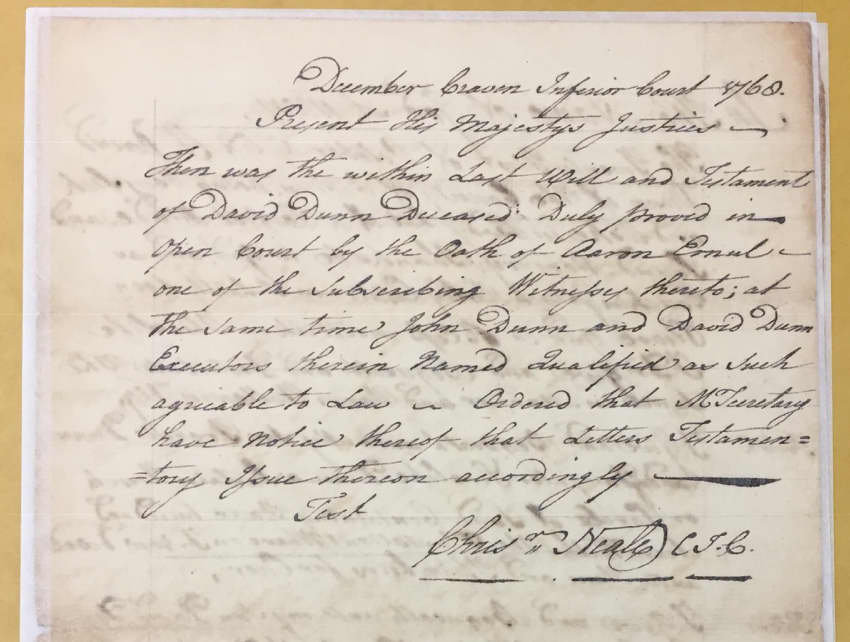 December Craven Inferior Court 1768.
Present His Majestys Justices —
Then was the within Last Will and Testament
of David Dunn Deceased Duly proved in
Open Court by the Oath of Aaron Ernul
one of the Subscribing Witnesses thereto; at
the same time John Dunn and David Dunn
Executors therein Named Qualified as such
agreable to Law ~ Ordered that Mr Secretary
have Notice thereof that Letters Testamen=
=tory Issue thereon accordingly —
Test
Chrisr. Neale C I. C.